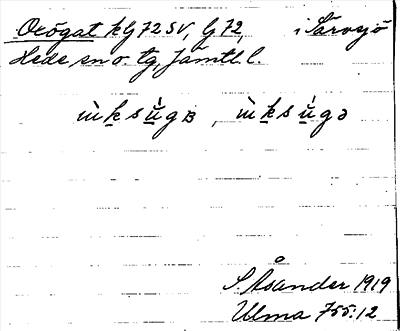 Oxögat kG72SV, G72, i Särvsjö
Hede sn o. tg, Jämtl. l.
ùksùgɞ, ùksùgə
S. Åsander 1919
Ulma 755:12